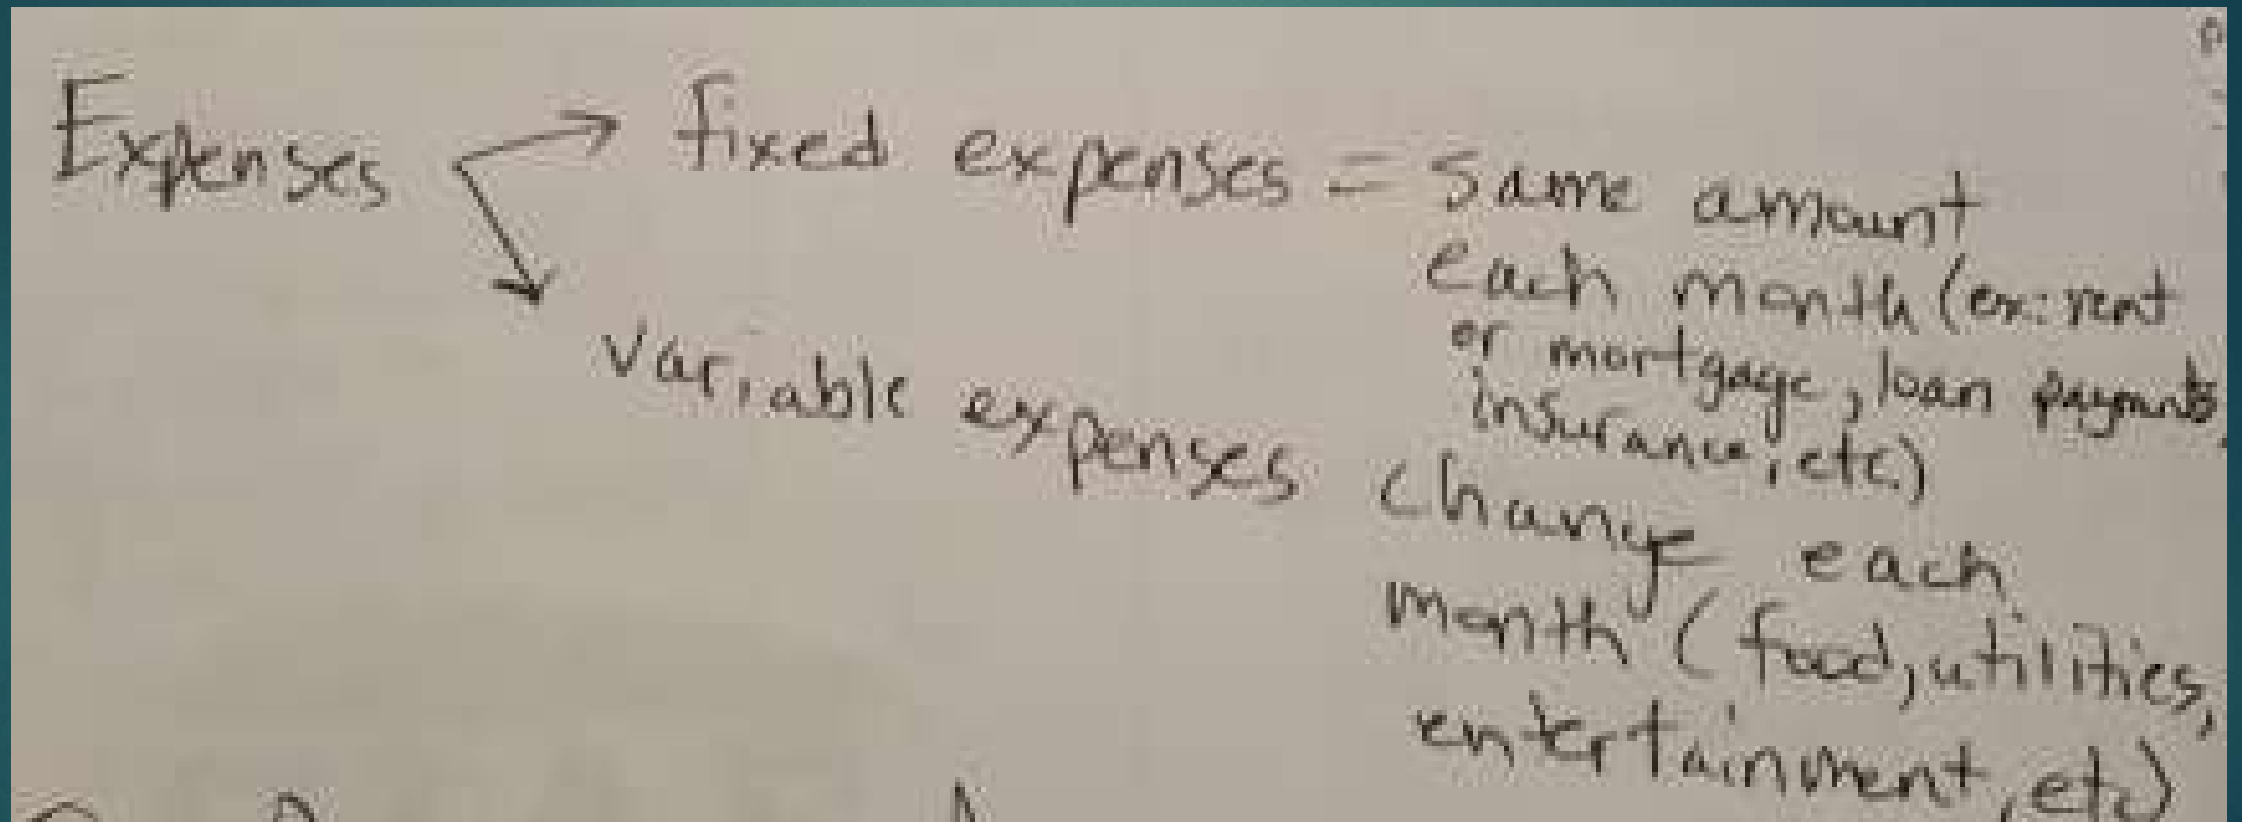 Expenses → fixed expenses = same amount
each month (ex: rent
or mortgage, loan payments,
insurance, etc)
variable expenses change each
month (food, utilities,
entertainment, etc)